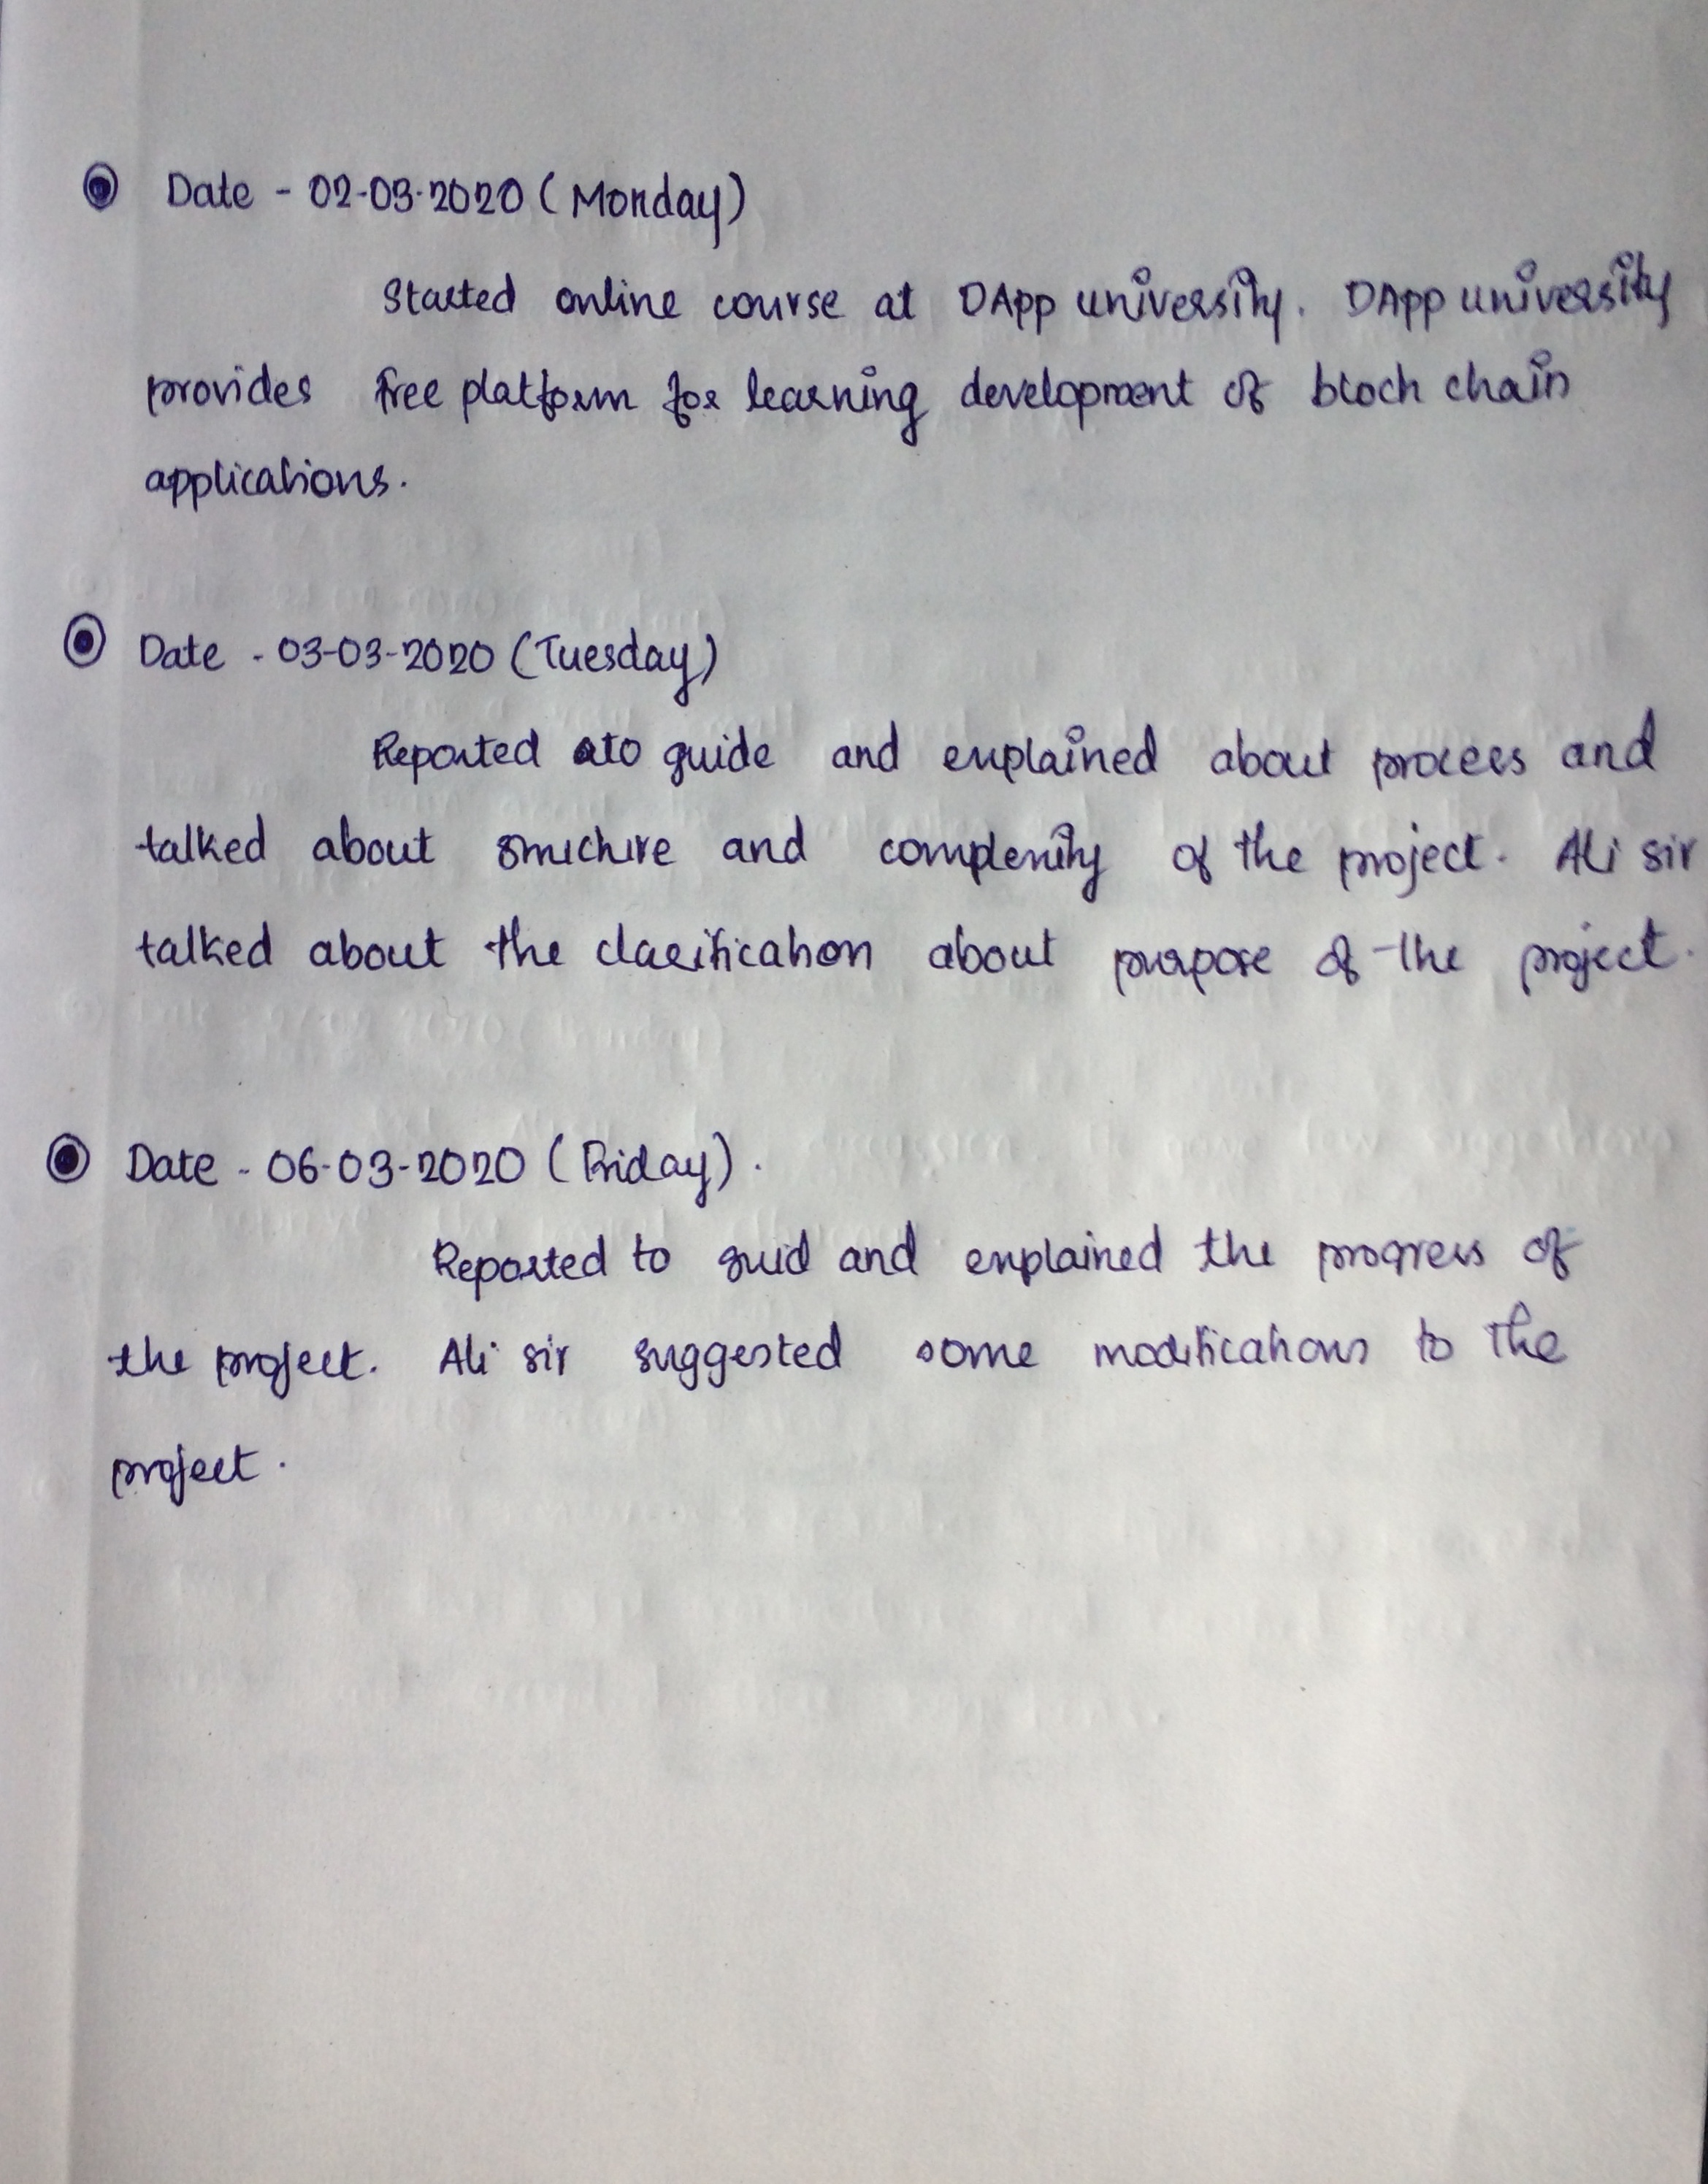 Date - 02-03-2020 (Monday)
Started online course at DApp university. DApp university
provides free platform for learning development of block chain
applications.
Date - 03-03-2020 (Tuesday)
Reported to guide and explained about process and
talked about structure and complexity of the project. Ali sir
talked about the clarification about purpose of the project.
Date - 06-03-2020 (Friday).
Reported to guid and explained the progress of
the project. Ali sir suggested some modifications to the
project.